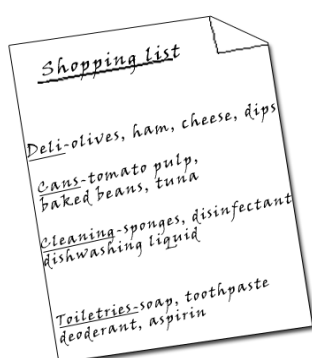 Shopping list
Deli-olives, ham, cheese, dips
Cans-tomato pulp,
baked beans, tuna
Cleaning-sponges, disinfectant
dishwashing liquid
Toiletries-soap, toothpaste
deoderant, aspirin